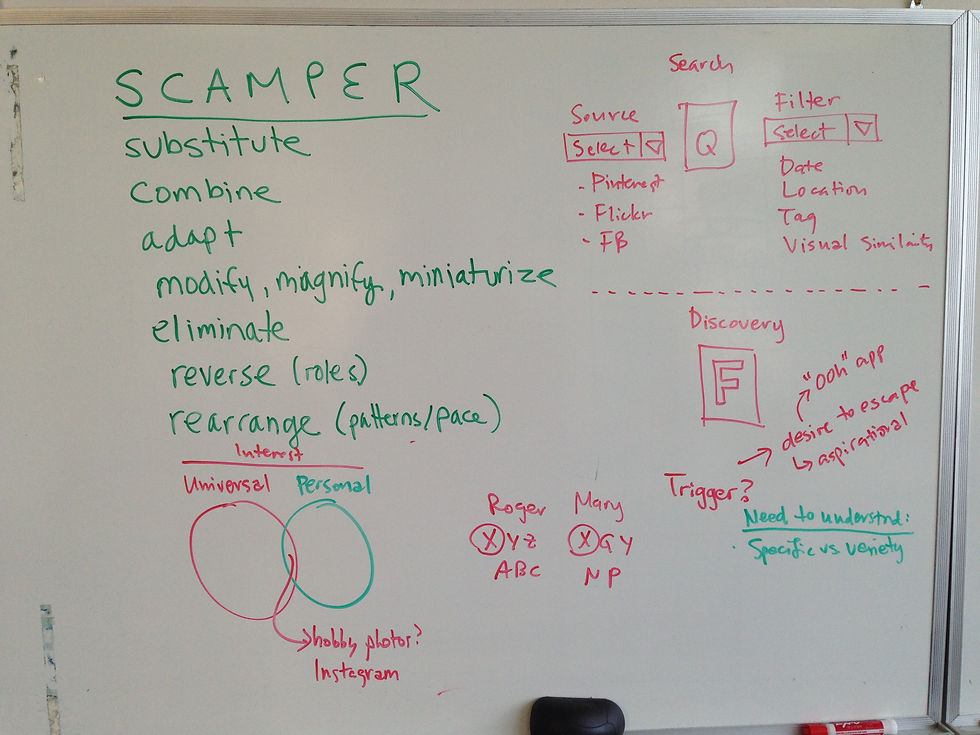 SCAMPER
substitute
combine
adapt
modify, magnify, miniaturize
eliminate
reverse (roles)
rearrange (patterns/pace)
Interest
Universal
Personal
hobby photos?
Instagram
Search
Source
Select
- Pinterest
- Flickr
- FB
Q
Filter
Select
Date
Location
Tag
Visual Similarity
Discovery
F
"ooh" app
desire to escape
aspirational
Trigger?
Roger
XYZ
ABC
Mary
XGY
NP
Need to understnd:
· Specific vs variety